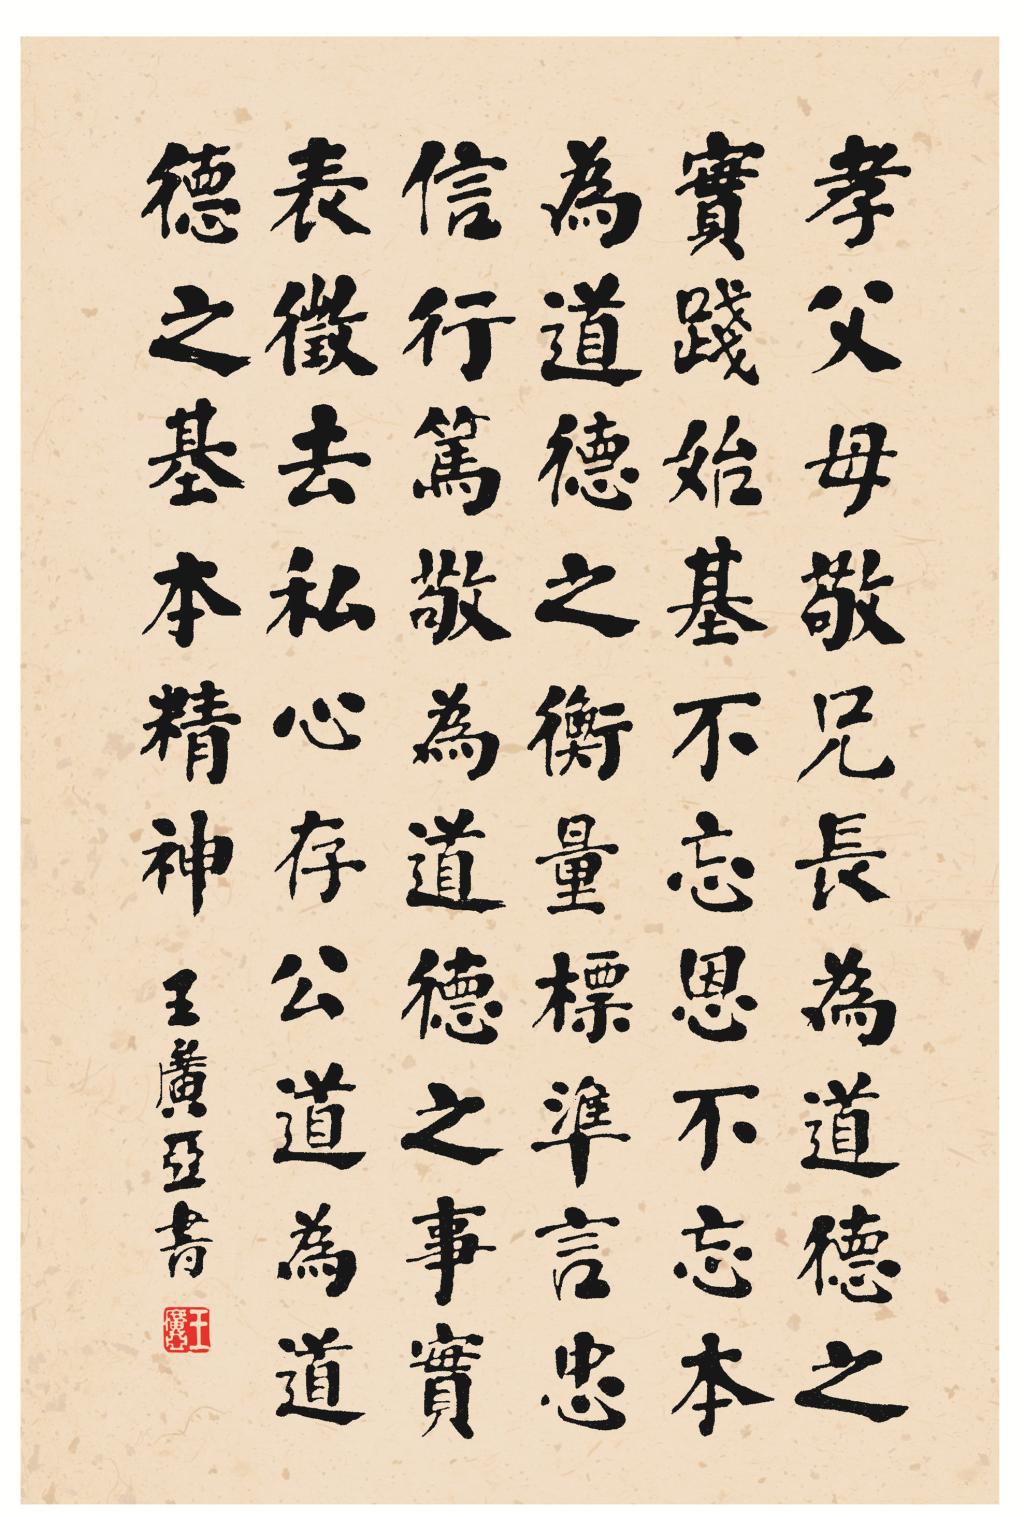 孝父母敬兄長為道德之
實踐始基不忘恩不忘本
為道德之衡量標準言忠
信行篤敬為道德之事實
表徵去私心存公道為道
德之基本精神
王廣亞書
王廣亞